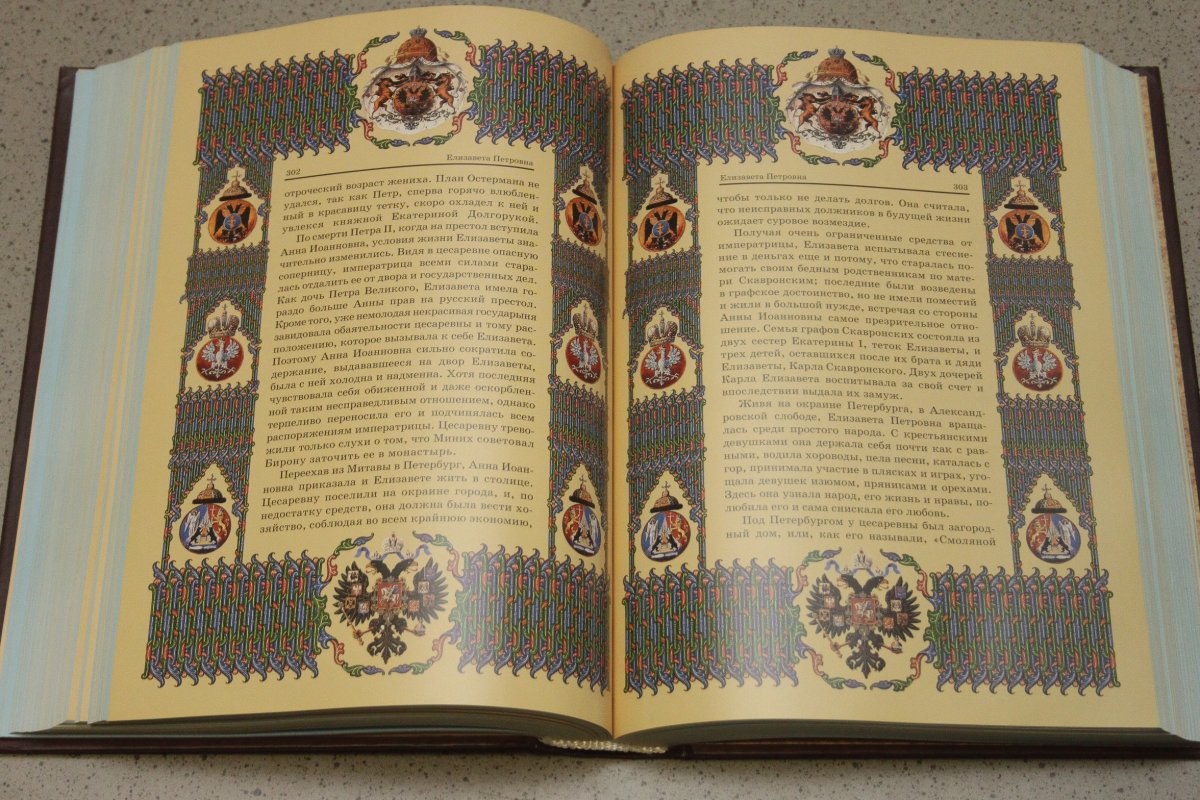 302
Елизавета Петровна
отроческий возраст жениха. План Остермана не
удался, так как Петр, сперва горячо влюблен-
ный в красавицу тетку, скоро охладел к ней и
увлекся княжной Екатериной Долгорукой.
По смерти Петра II, когда на престол вступила
Анна Иоанновна, условия жизни Елизаветы зна-
чительно изменились. Видя в цесаревне опасную
соперницу, императрица всеми силами стара-
лась отдалить ее от двора и государственных дел.
Как дочь Петра Великого, Елизавета имела го-
раздо больше Анны прав на русский престол.
Кроме того, уже немолодая некрасивая государыня
завидовала обаятельности цесаревны и тому рас-
положению, которое вызывала к себе Елизавета.
Поэтому Анна Иоанновна сильно сократила со-
держание, выдававшееся на двор Елизаветы,
была с ней холодна и надменна. Хотя последняя
чувствовала себя обиженной и даже оскорблен-
ной таким несправедливым отношением, однако
терпеливо переносила его и подчинялась всем
распоряжениям императрицы. Цесаревну трево-
жили только слухи о том, что Миних советовал
Бирону заточить ее в монастырь.
Переехав из Митавы в Петербург, Анна Иоан-
новна приказала и Елизавете жить в столице.
Цесаревну поселили на окраине города, и, по
недостатку средств, она должна была вести хо-
зяйство, соблюдая во всем крайнюю экономию,
Елизавета Петровна
303
чтобы только не делать долгов. Она считала,
что неисправных должников в будущей жизни
ожидает суровое возмездие.
Получая очень ограниченные средства от
императрицы, Елизавета испытывала стесне-
ние в деньгах еще и потому, что старалась по-
могать своим бедным родственникам по мате-
ри Скавронским; последние были возведены
в графское достоинство, но не имели поместий
и жили в большой нужде, встречая со стороны
Анны Иоанновны самое презрительное отно-
шение. Семья графов Скавронских состояла из
двух сестер Екатерины I, теток Елизаветы, и
трех детей, оставшихся после их брата и дяди
Елизаветы, Карла Скавронского. Двух дочерей
Карла Елизавета воспитывала за свой счет и
впоследствии выдала их замуж.
Живя на окраине Петербурга, в Александ-
ровской слободе, Елизавета Петровна враща-
лась среди простого народа. С крестьянскими
девушками она держала себя почти как с рав-
ными, водила хороводы, пела песни, каталась с
гор, принимала участие в плясках и играх, уго-
щала девушек изюмом, пряниками и орехами.
Здесь она узнала народ, его жизнь и нравы, по-
любила его и сама снискала его любовь.
Под Петербургом у цесаревны был загород-
ный дом, или, как его называли, «Смоляной